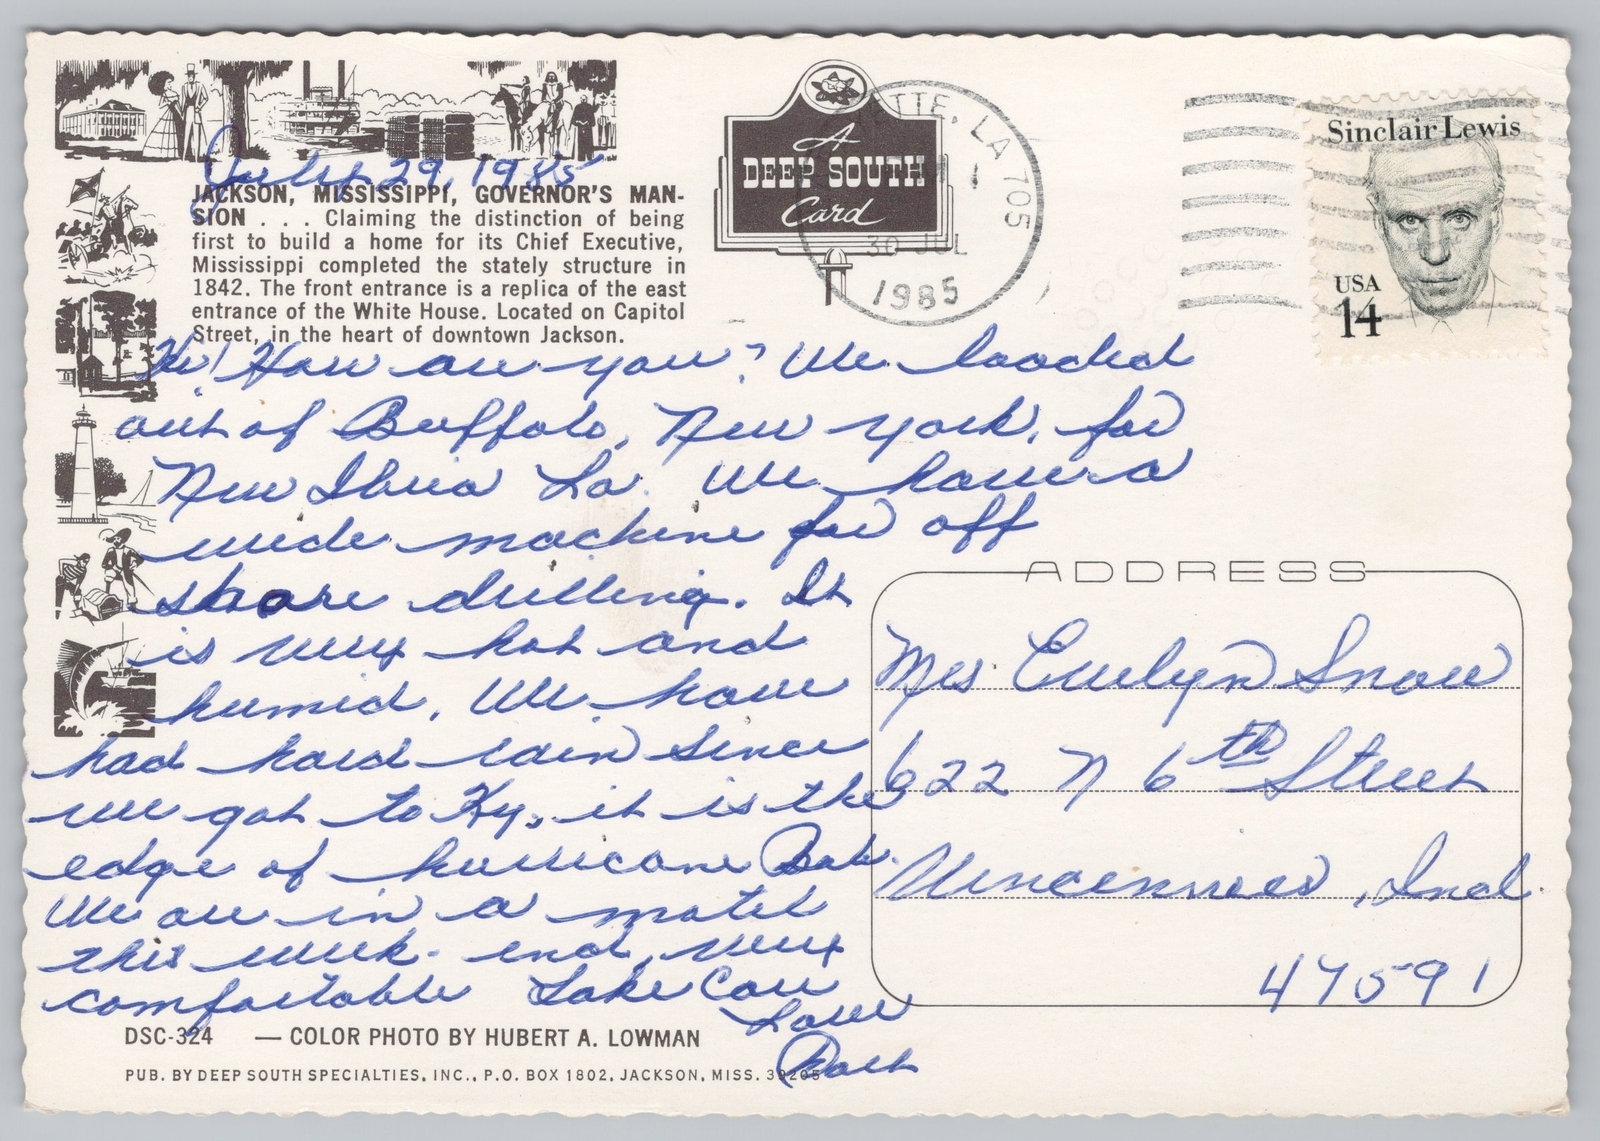 July 29, 1985
JACKSON, MISSISSIPPI, GOVERNOR'S MAN-
SION . . . Claiming the distinction of being
first to build a home for its Chief Executive,
Mississippi completed the stately structure in
1842. The front entrance is a replica of the east
entrance of the White House. Located on Capitol
Street, in the heart of downtown Jackson.
A
DEEP SOUTH
Card
ETTE, LA 705
30 JUL
1985
Sinclair Lewis
USA
14
Hi! How are you? We loaded
out of Buffalo, New York, for
New Iberia La. We have a
wide machine for off
shore drilling. It
is very hot and
humid. We have
had hard rain since
we got to Ky., it is the
edge of hurricane Bob.
We are in a motel
this week-end, very
comfortable Take Care
Love
Ruth
ADDRESS
Mrs Evelyn Snow
622 N 6th Street
Vincennes, Ind.
47591
DSC-324 — COLOR PHOTO BY HUBERT A. LOWMAN
PUB. BY DEEP SOUTH SPECIALTIES, INC., P.O. BOX 1802, JACKSON, MISS. 39205